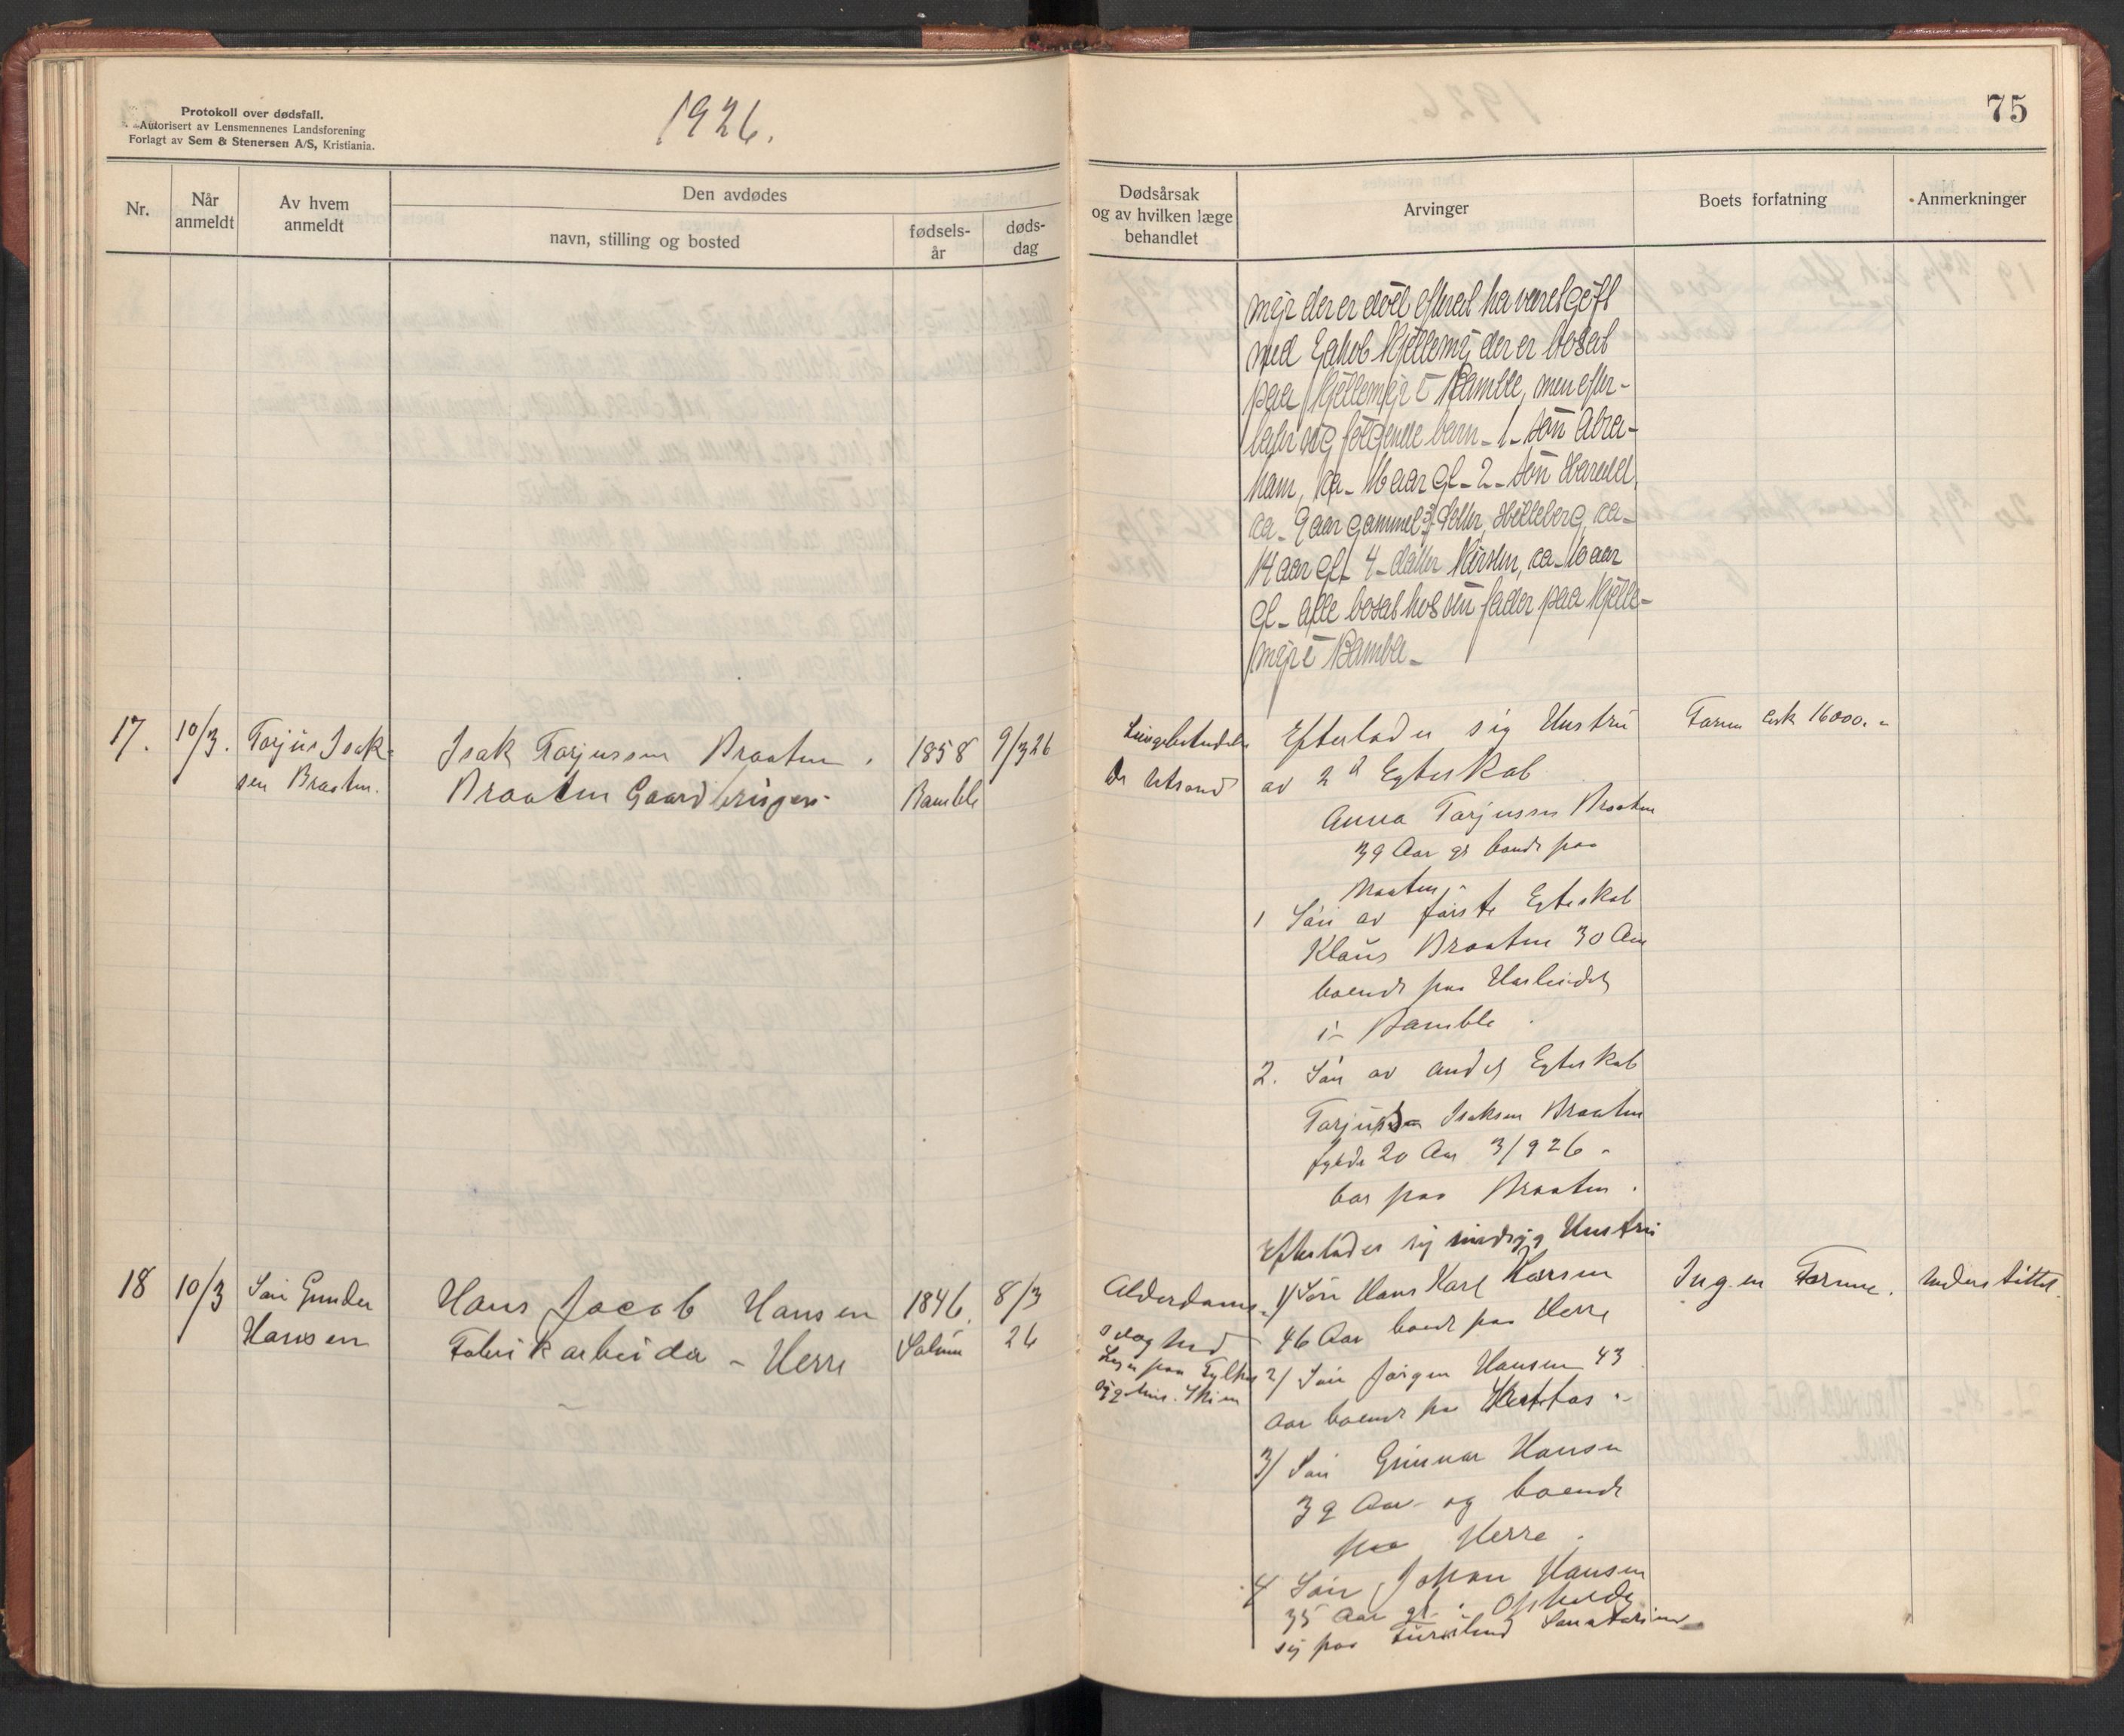 Protokoll over dødsfall.
Autorisert av Lensmennenes Landsforening
Forlagt av Sem & Stenersen A/S, Kristiania.
1926.
75
Nr.
Når anmeldt
Av hvem anmeldt
Den avdødes
navn, stilling og bosted
fødsels-
år
døds-
dag
Dødsårsak
og av hvilken læge
behandlet
Arvinger
Boets forfatning
Anmerkninger
mejr der er död efterat ha været gift
med Jakob Kjellemyr der er bosat
paa Kjellemyr i Bamble, men efter-
later sig følgende barn - 1 - sön Abra-
ham, ca - 16 aar gl - 2 - sön Harald,
ca - 9 aar gammel 3 - datter, Hilleberg, ca -
14 aar gl - 4 - datter Kirsten, ca - 10 aar
gl - alle bosat hos sin fader paa Kjelle-
myr i Bamble -
17.
10/3.
Torjus Isak-
sen Braaten.
Isak Torjussen Braaten.
Braaten Gaardbruger -
1858
Bamble
9/3 26
Lungebetendelse
Dr Utrand
Efterlader sig Hustru
av 2d Egteskab
Anna Torjussen Braaten
39 Aar gl boende paa
Braaten -
1 Sön av förste Egteskab
Klaus Braaten 30 Aar
boende paa
i Bamble.
2. Sön av andet Egteskab
Torjus Isaksen Braaten
fylde 20 Aar 3/9 26 -
bor paa Braaten.
Formue cirk 16000. -
18
10/3
Sön Gunder
Hansen
Hans Jacob Hansen
Fabrikarbeider - Herre
1846.
Solum
8/3
26
Alderdoms-
svaghed
paa Fylkes
sygehus. Skien
Efterlader sig Hustru
1/ Sön Hans Karl Hansen
46 Aar boende paa Herre
2/ Sön Jörgen Hansen 43
Aar boende paa
3/ Sön Gunnar Hansen
39 Aar og boende
paa Herre.
4 Sön Johan Hansen
35 Aar gl. Opholder
sig paa Sanatorium
Ingen Formue.
Understöttet.